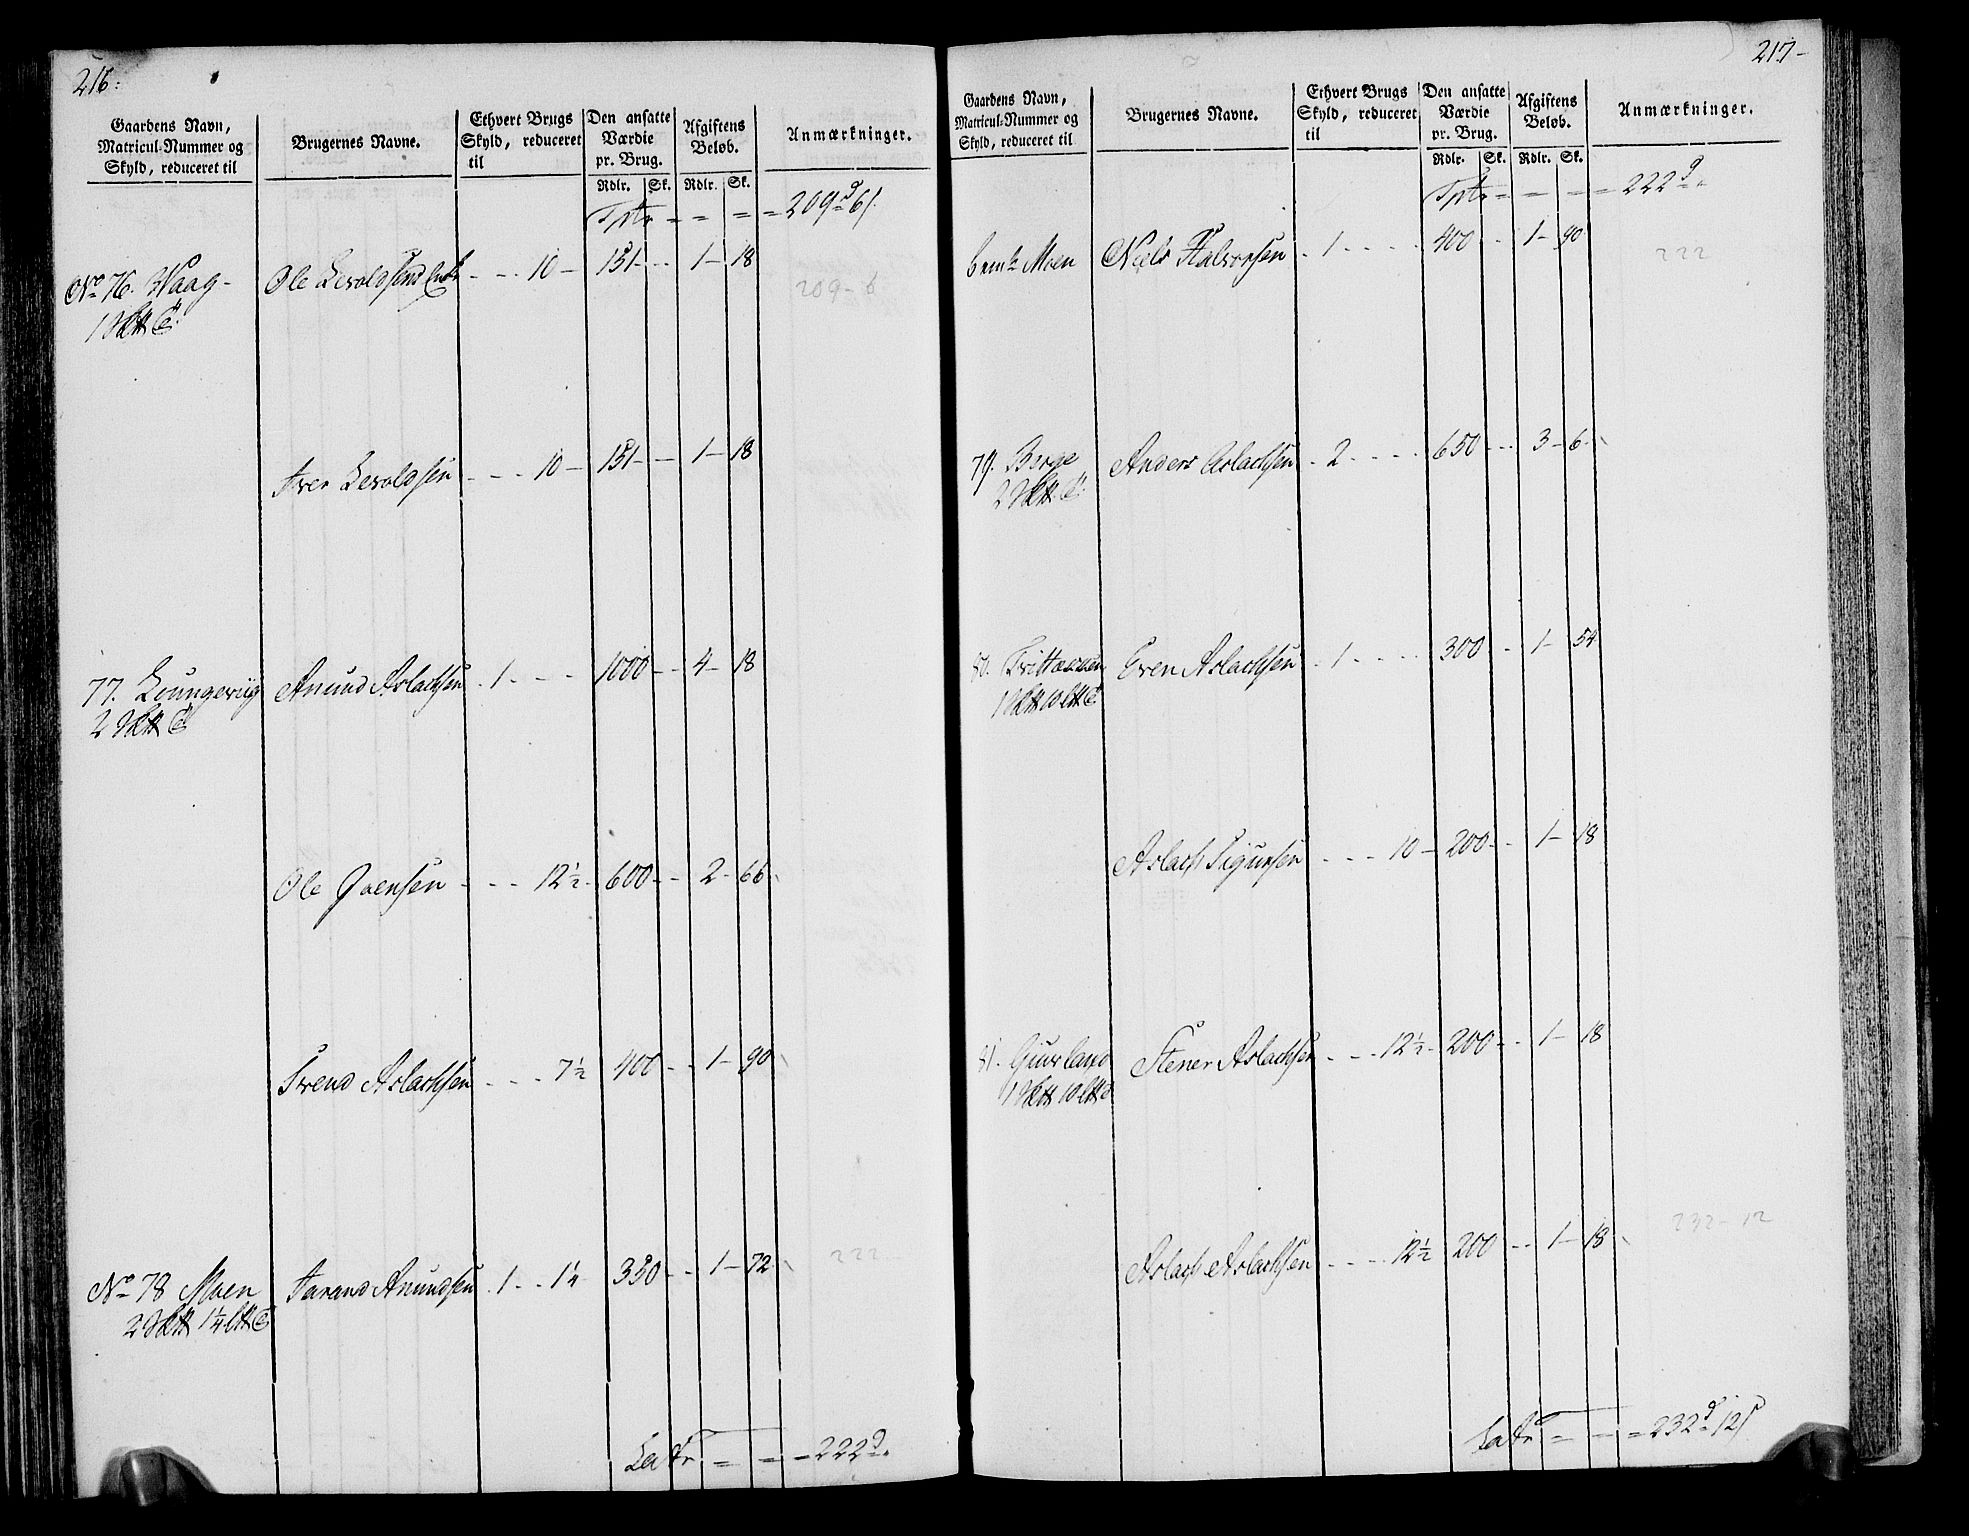 216.
Gaardens Navn, Matricul-Nummer og Skyld, reduceret til | Brugernes Navne. | Ethvert Brugs Skyld, reduceret til | Den ansatte Værdie pr. Brug. | Afgiftens Beløb. | Anmærkninger.
Rdlr. | Sk. | Rdlr. | Sk.
= = = = 209 d 6 s.
No 76. Waag - | Ole | - - - 10 - | 151 - - | 1 - 18
209 - 6
Iver Levoldsen - - - 10 - | 151 - - | 1 - 18
77. Loungeviig | Anund Aslachsen | 1 - - - | 1000 - - | 4 - 18
Ole Joensen - - - 12½ - | 600 - - | 2 - 66
Svend Aslachsen - - - 7½ | 400 - - | 1 - 90
222
No 78 Moen | Tarand Anundsen | 1 - - 1¼ | 350 - - | 1 - 72
= = = 222 d
217 -
Gaardens Navn, Matricul-Nummer og Skyld, reduceret til | Brugernes Navne. | Ethvert Brugs Skyld, reduceret til | Den ansatte Værdie pr. Brug. | Afgiftens Beløb. | Anmærkninger.
Rdlr. | Sk. | Rdlr. | Sk.
= = = = 222 d
Moen | Niels Halvorsen | - 1 - - - - | 400 - - | 1 - 90
222
79. Berge | Anders Aslachsen | - 2 - - - - | 650 - - | 3 - 6
80. | Even Aslachsen | - 1 - - - - | 300 - - | 1 - 54
Aslach Sigursen - - - 10 - | 200 - - | 1 - 18
81. Giuvland | Stener Aslachsen | - - - 12½ - | 200 - - | 1 - 18
232 - 12
Aslach Aslachsen - - - - 12½ | 200 - - | 1 - 18
= = = 232 d 12 s